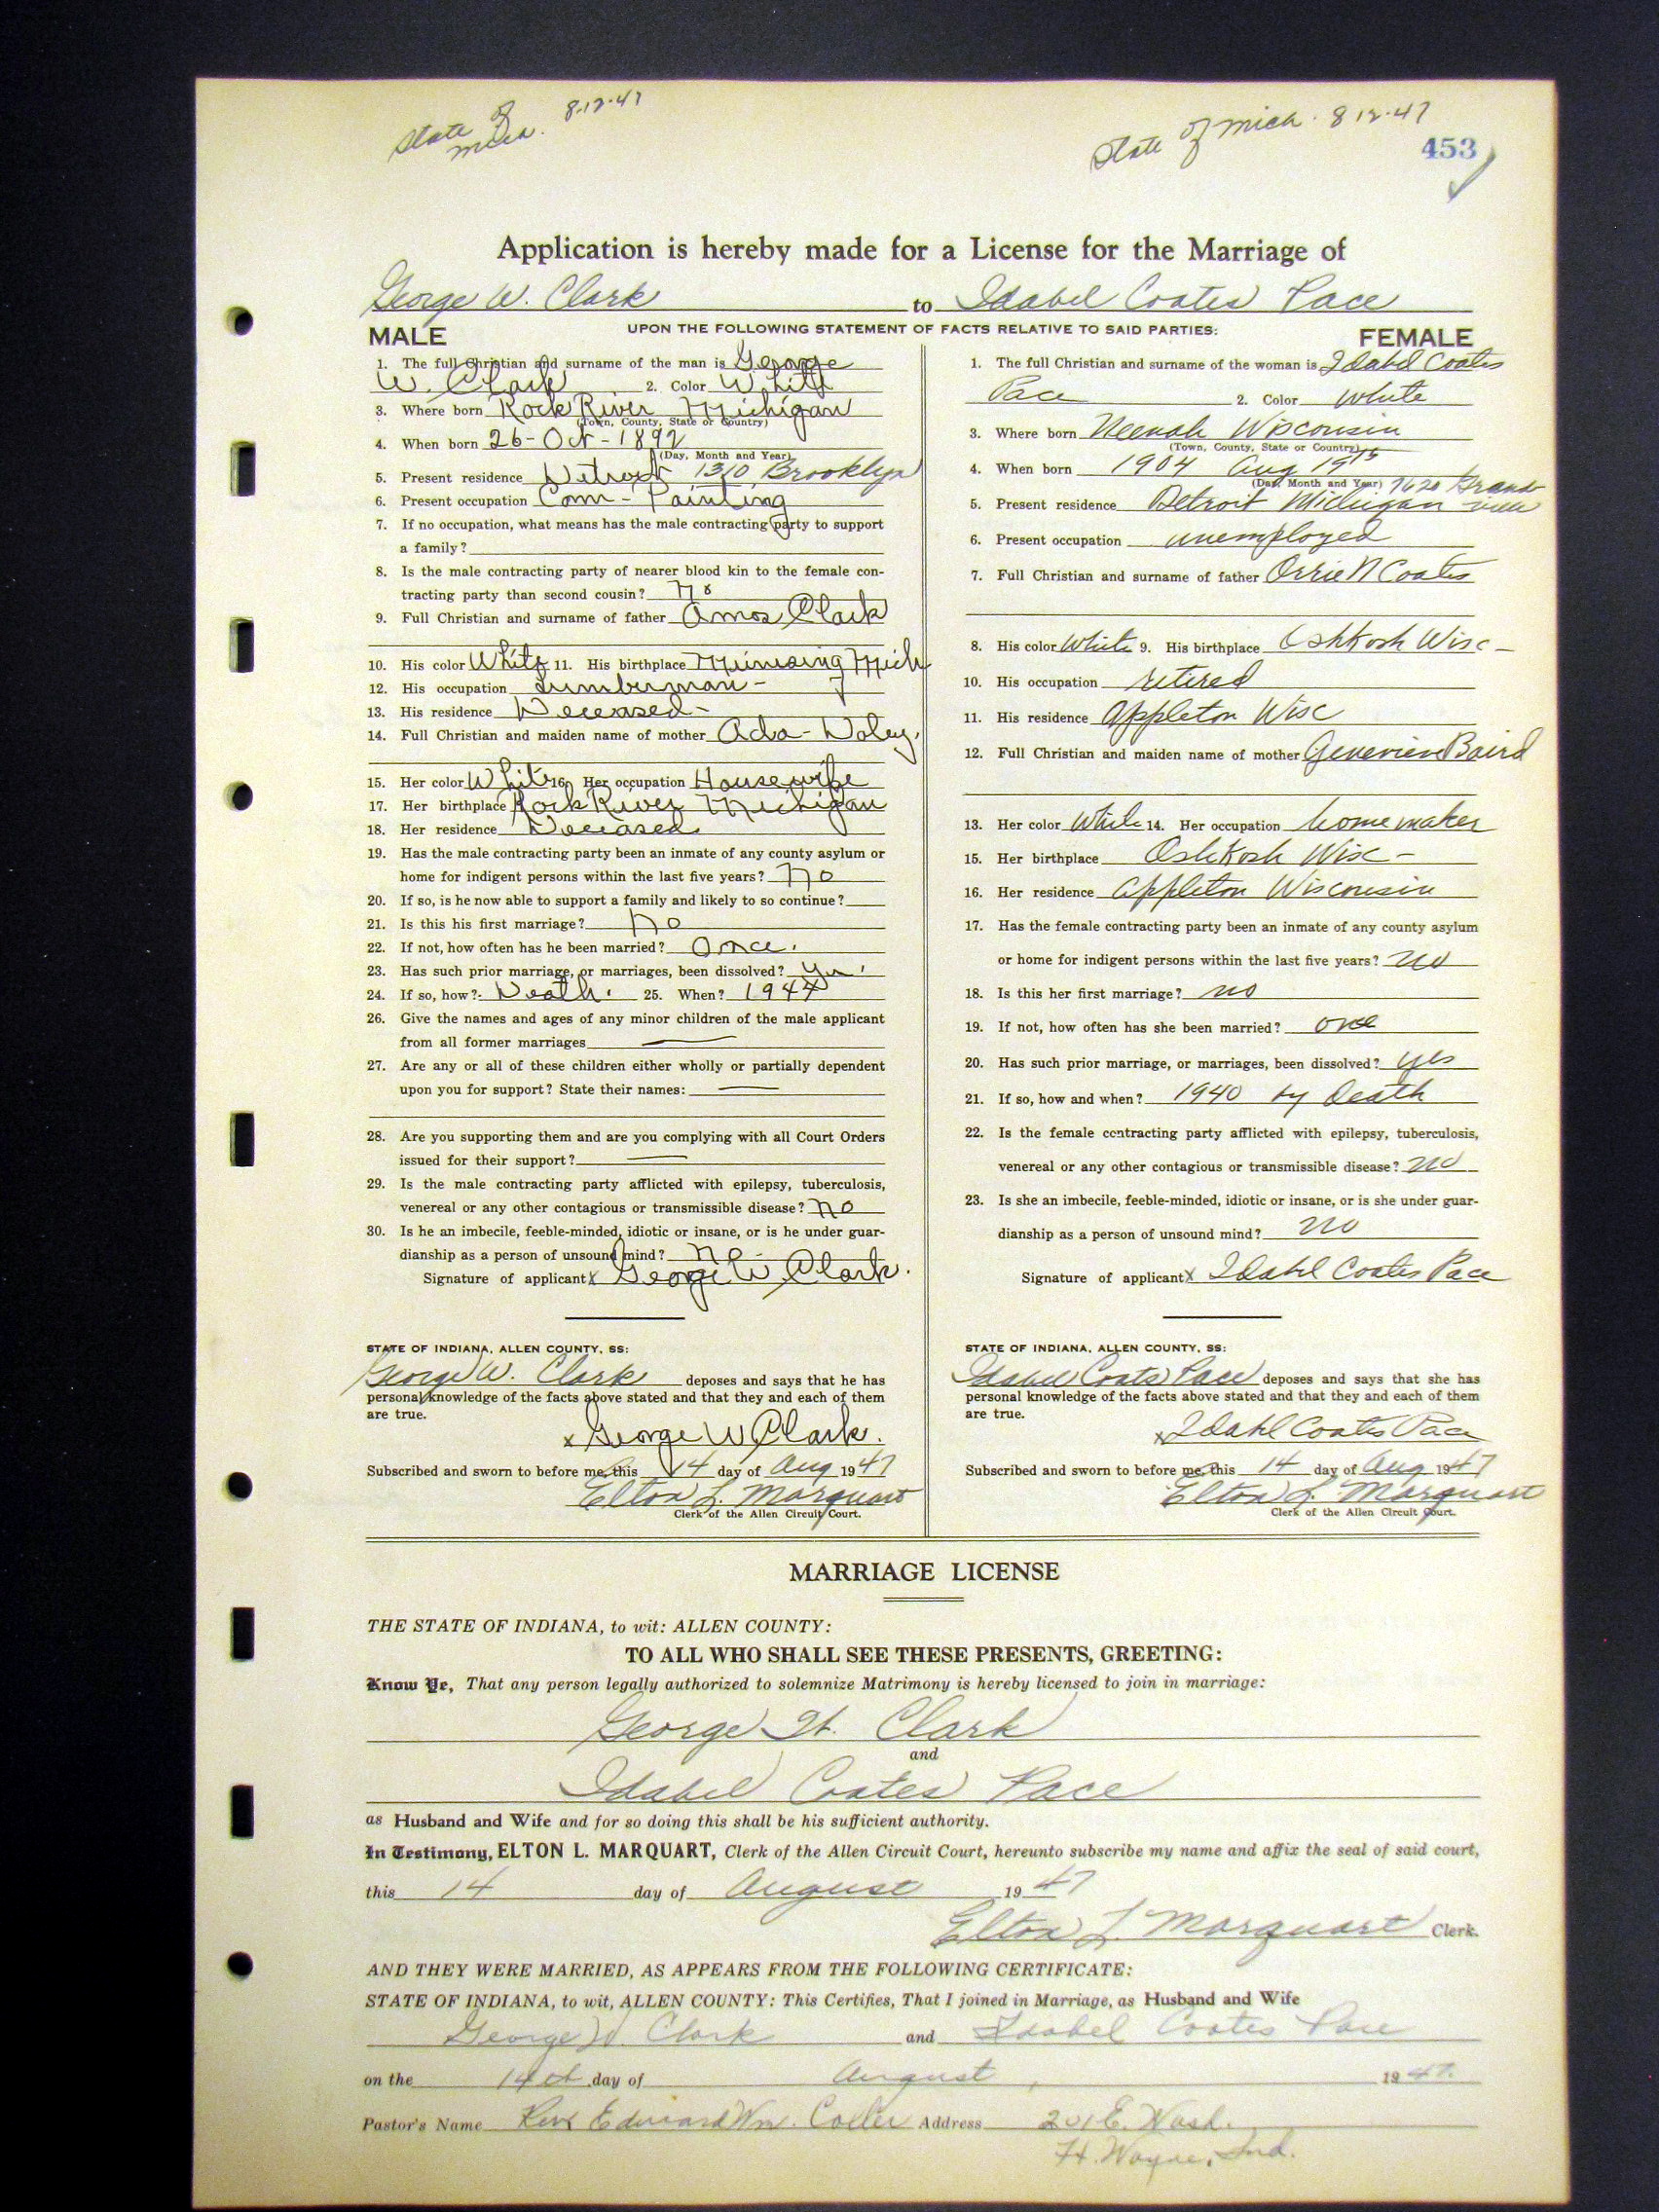 State of Mich. 8-12-47
State of Mich. 8 12-47
453
Application is hereby made for a License for the Marriage of
George W. Clark to Idabel Coates Pace
UPON THE FOLLOWING STATEMENT OF FACTS RELATIVE TO SAID PARTIES:
MALE
1. The full Christian and surname of the man is George
W. Clark 2. Color White
3. Where born Rock River Michigan
(Town, County, State or Country)
4. When born 26-Oct-1892
(Day, Month and Year)
5. Present residence Detroit 1310 Brooklyn
6. Present occupation Com-Painting
7. If no occupation, what means has the male contracting party to support
a family?
8. Is the male contracting party of nearer blood kin to the female con-
tracting party than second cousin? No
9. Full Christian and surname of father Amos Clark
10. His color White 11. His birthplace Munising Mich
12. His occupation Lumberman-
13. His residence Deceased-
14. Full Christian and maiden name of mother Ada-Doley.
15. Her color White 16. Her occupation Housewife
17. Her birthplace Rock River Michigan
18. Her residence Deceased
19. Has the male contracting party been an inmate of any county asylum or
home for indigent persons within the last five years? No
20. If so, is he now able to support a family and likely to so continue?
21. Is this his first marriage? No
22. If not, how often has he been married? Once.
23. Has such prior marriage, or marriages, been dissolved? Yes.
24. If so, how?: Death. 25. When? 1944
26. Give the names and ages of any minor children of the male applicant
from all former marriages
27. Are any or all of these children either wholly or partially dependent
upon you for support? State their names:
28. Are you supporting them and are you complying with all Court Orders
issued for their support?
29. Is the male contracting party afflicted with epilepsy, tuberculosis,
venereal or any other contagious or transmissible disease? No
30. Is he an imbecile, feeble-minded, idiotic or insane, or is he under guar-
dianship as a person of unsound mind? No-
Signature of applicant X George W Clark.
STATE OF INDIANA, ALLEN COUNTY, SS:
George W. Clark deposes and says that he has
personal knowledge of the facts above stated and that they and each of them
are true.
x George W Clark.
Subscribed and sworn to before me, this 14 day of Aug 1947
Elton L. Marquart
Clerk of the Allen Circuit Court.
FEMALE
1. The full Christian and surname of the woman is Idabel Coates
Pace 2. Color White
3. Where born Neenah Wisconsin
(Town, County, State or Country)
4. When born 1904 Aug 19th
(Day, Month and Year) 7620 Grand
5. Present residence Detroit Michigan ville
6. Present occupation unemployed
7. Full Christian and surname of father Orrie N Coates
8. His color White 9. His birthplace Oshkosh Wisc-
10. His occupation retired
11. His residence Appleton Wisc
12. Full Christian and maiden name of mother Genevieve Baird
13. Her color White 14. Her occupation homemaker
15. Her birthplace Oshkosh Wisc-
16. Her residence Appleton Wisconsin
17. Has the female contracting party been an inmate of any county asylum
or home for indigent persons within the last five years? no
18. Is this her first marriage? no
19. If not, how often has she been married? once
20. Has such prior marriage, or marriages, been dissolved? yes
21. If so, how and when? 1940 by death
22. Is the female contracting party afflicted with epilepsy, tuberculosis,
venereal or any other contagious or transmissible disease? no
23. Is she an imbecile, feeble-minded, idiotic or insane, or is she under guar-
dianship as a person of unsound mind? no
Signature of applicant X Idabel Coates Pace
STATE OF INDIANA, ALLEN COUNTY, SS:
Idabel Coates Pace deposes and says that she has
personal knowledge of the facts above stated and that they and each of them
are true.
x Idabel Coates Pace
Subscribed and sworn to before me, this 14 day of Aug 1947
Elton L. Marquart
Clerk of the Allen Circuit Court.
MARRIAGE LICENSE
THE STATE OF INDIANA, to wit: ALLEN COUNTY:
TO ALL WHO SHALL SEE THESE PRESENTS, GREETING:
Know Ye, That any person legally authorized to solemnize Matrimony is hereby licensed to join in marriage:
George W. Clark
and
Idabel Coates Pace
as Husband and Wife and for so doing this shall be his sufficient authority.
In Testimony, ELTON L. MARQUART, Clerk of the Allen Circuit Court, hereunto subscribe my name and affix the seal of said court,
this 14 day of August 1947
Elton L. Marquart Clerk.
AND THEY WERE MARRIED, AS APPEARS FROM THE FOLLOWING CERTIFICATE:
STATE OF INDIANA, to wit, ALLEN COUNTY: This Certifies, That I joined in Marriage, as Husband and Wife
George W. Clark and Idabel Coates Pace
on the 14th day of August, 1947.
Pastor's Name Rev Edward Wm. Address 201 E. Wash.
Ft. Wayne, Ind.